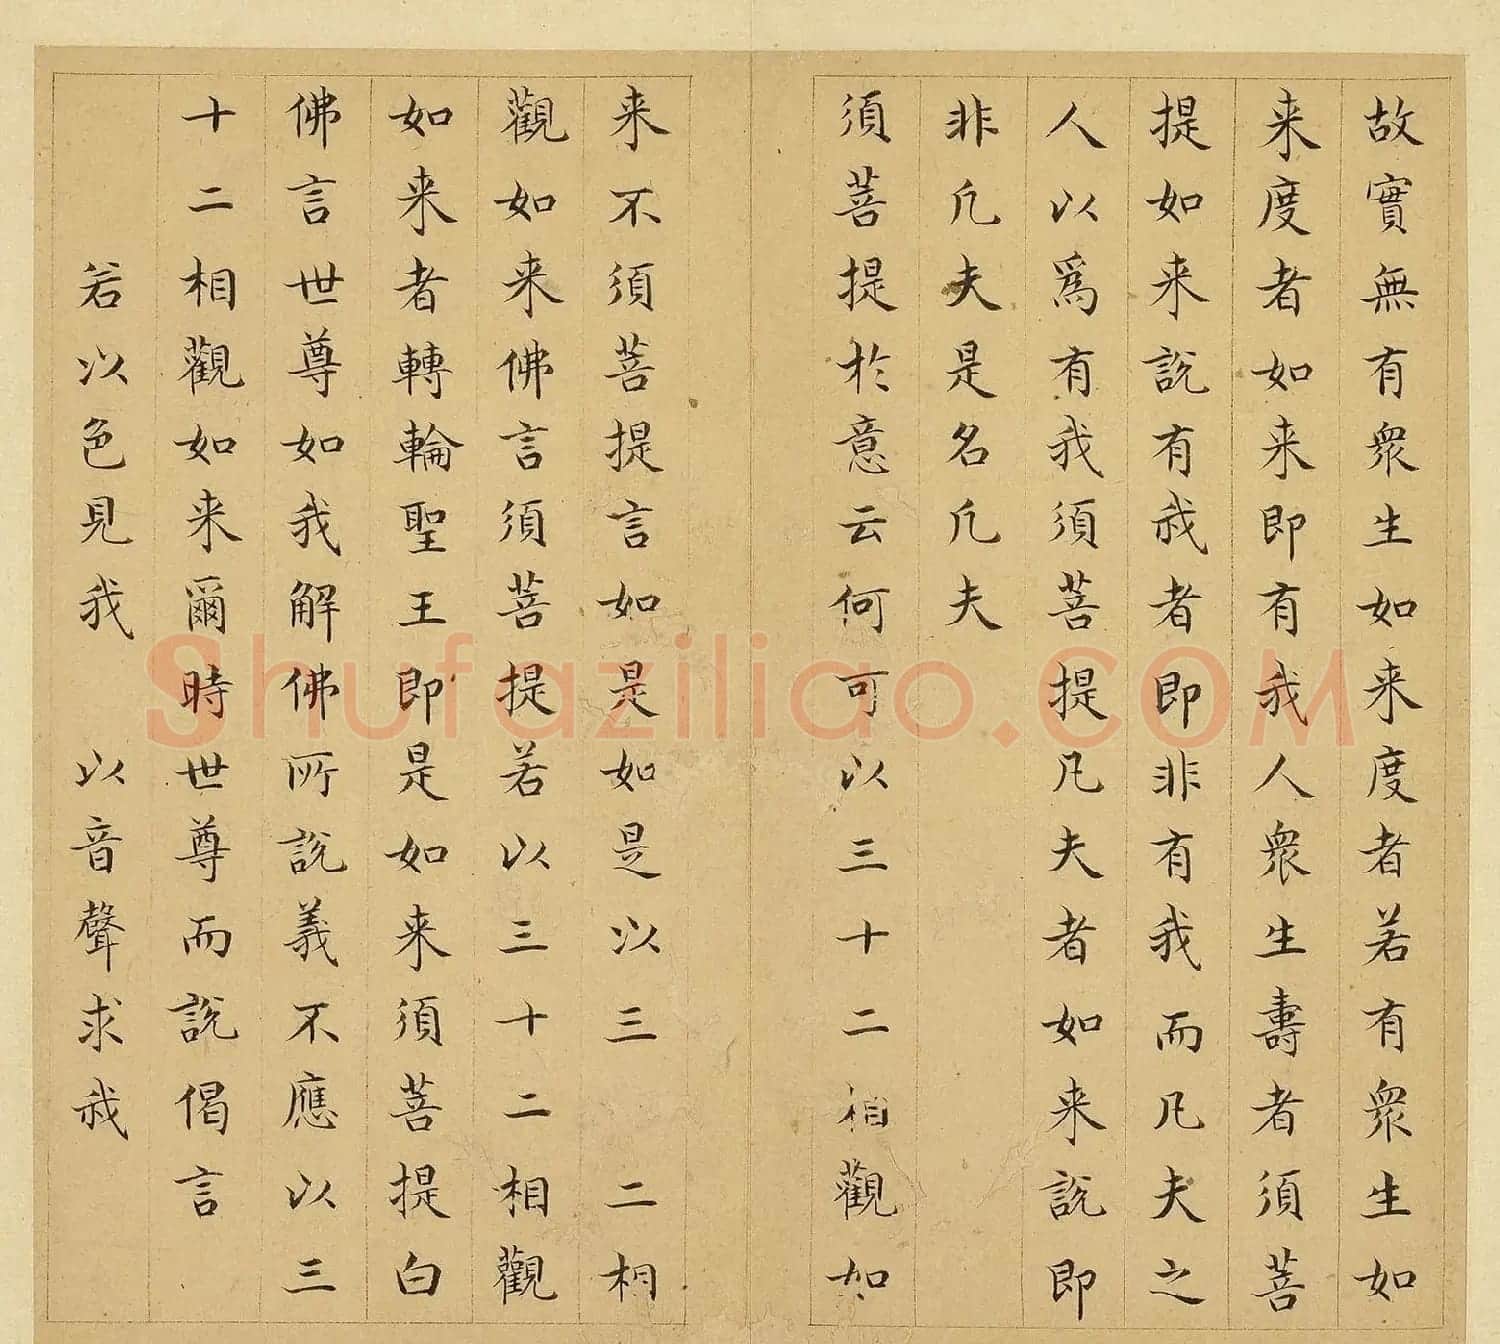 故實無有衆生如来度者若有衆生如
来度者如来即有我人衆生壽者須菩
提如来說有我者即非有我而凡夫之
人以爲有我須菩提凡夫者如来說即
非凡夫是名凡夫
須菩提於意云何可以三十二相觀如
来不須菩提言如是如是以三 二相
觀如来佛言須菩提若以三十二相觀
如来者轉輪聖王即是如来須菩提白
佛言世尊如我解佛所說義不應以三
十二相觀如来爾時世尊而說偈言
若以色見我 以音聲求我
Shufaziliao.COM